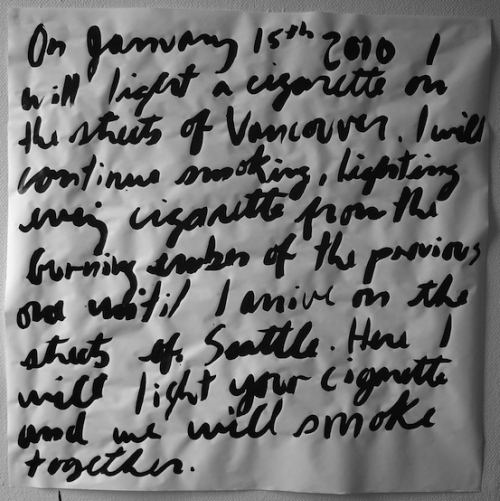 On January 15th 2010 I
will light a cigarette on
the streets of Vancouver. I will
continue smoking, lighting
every cigarette from the
burning ember of the previous
one until I arrive on the
streets of Seattle. Here I
will light your cigarette
and we will smoke
together.